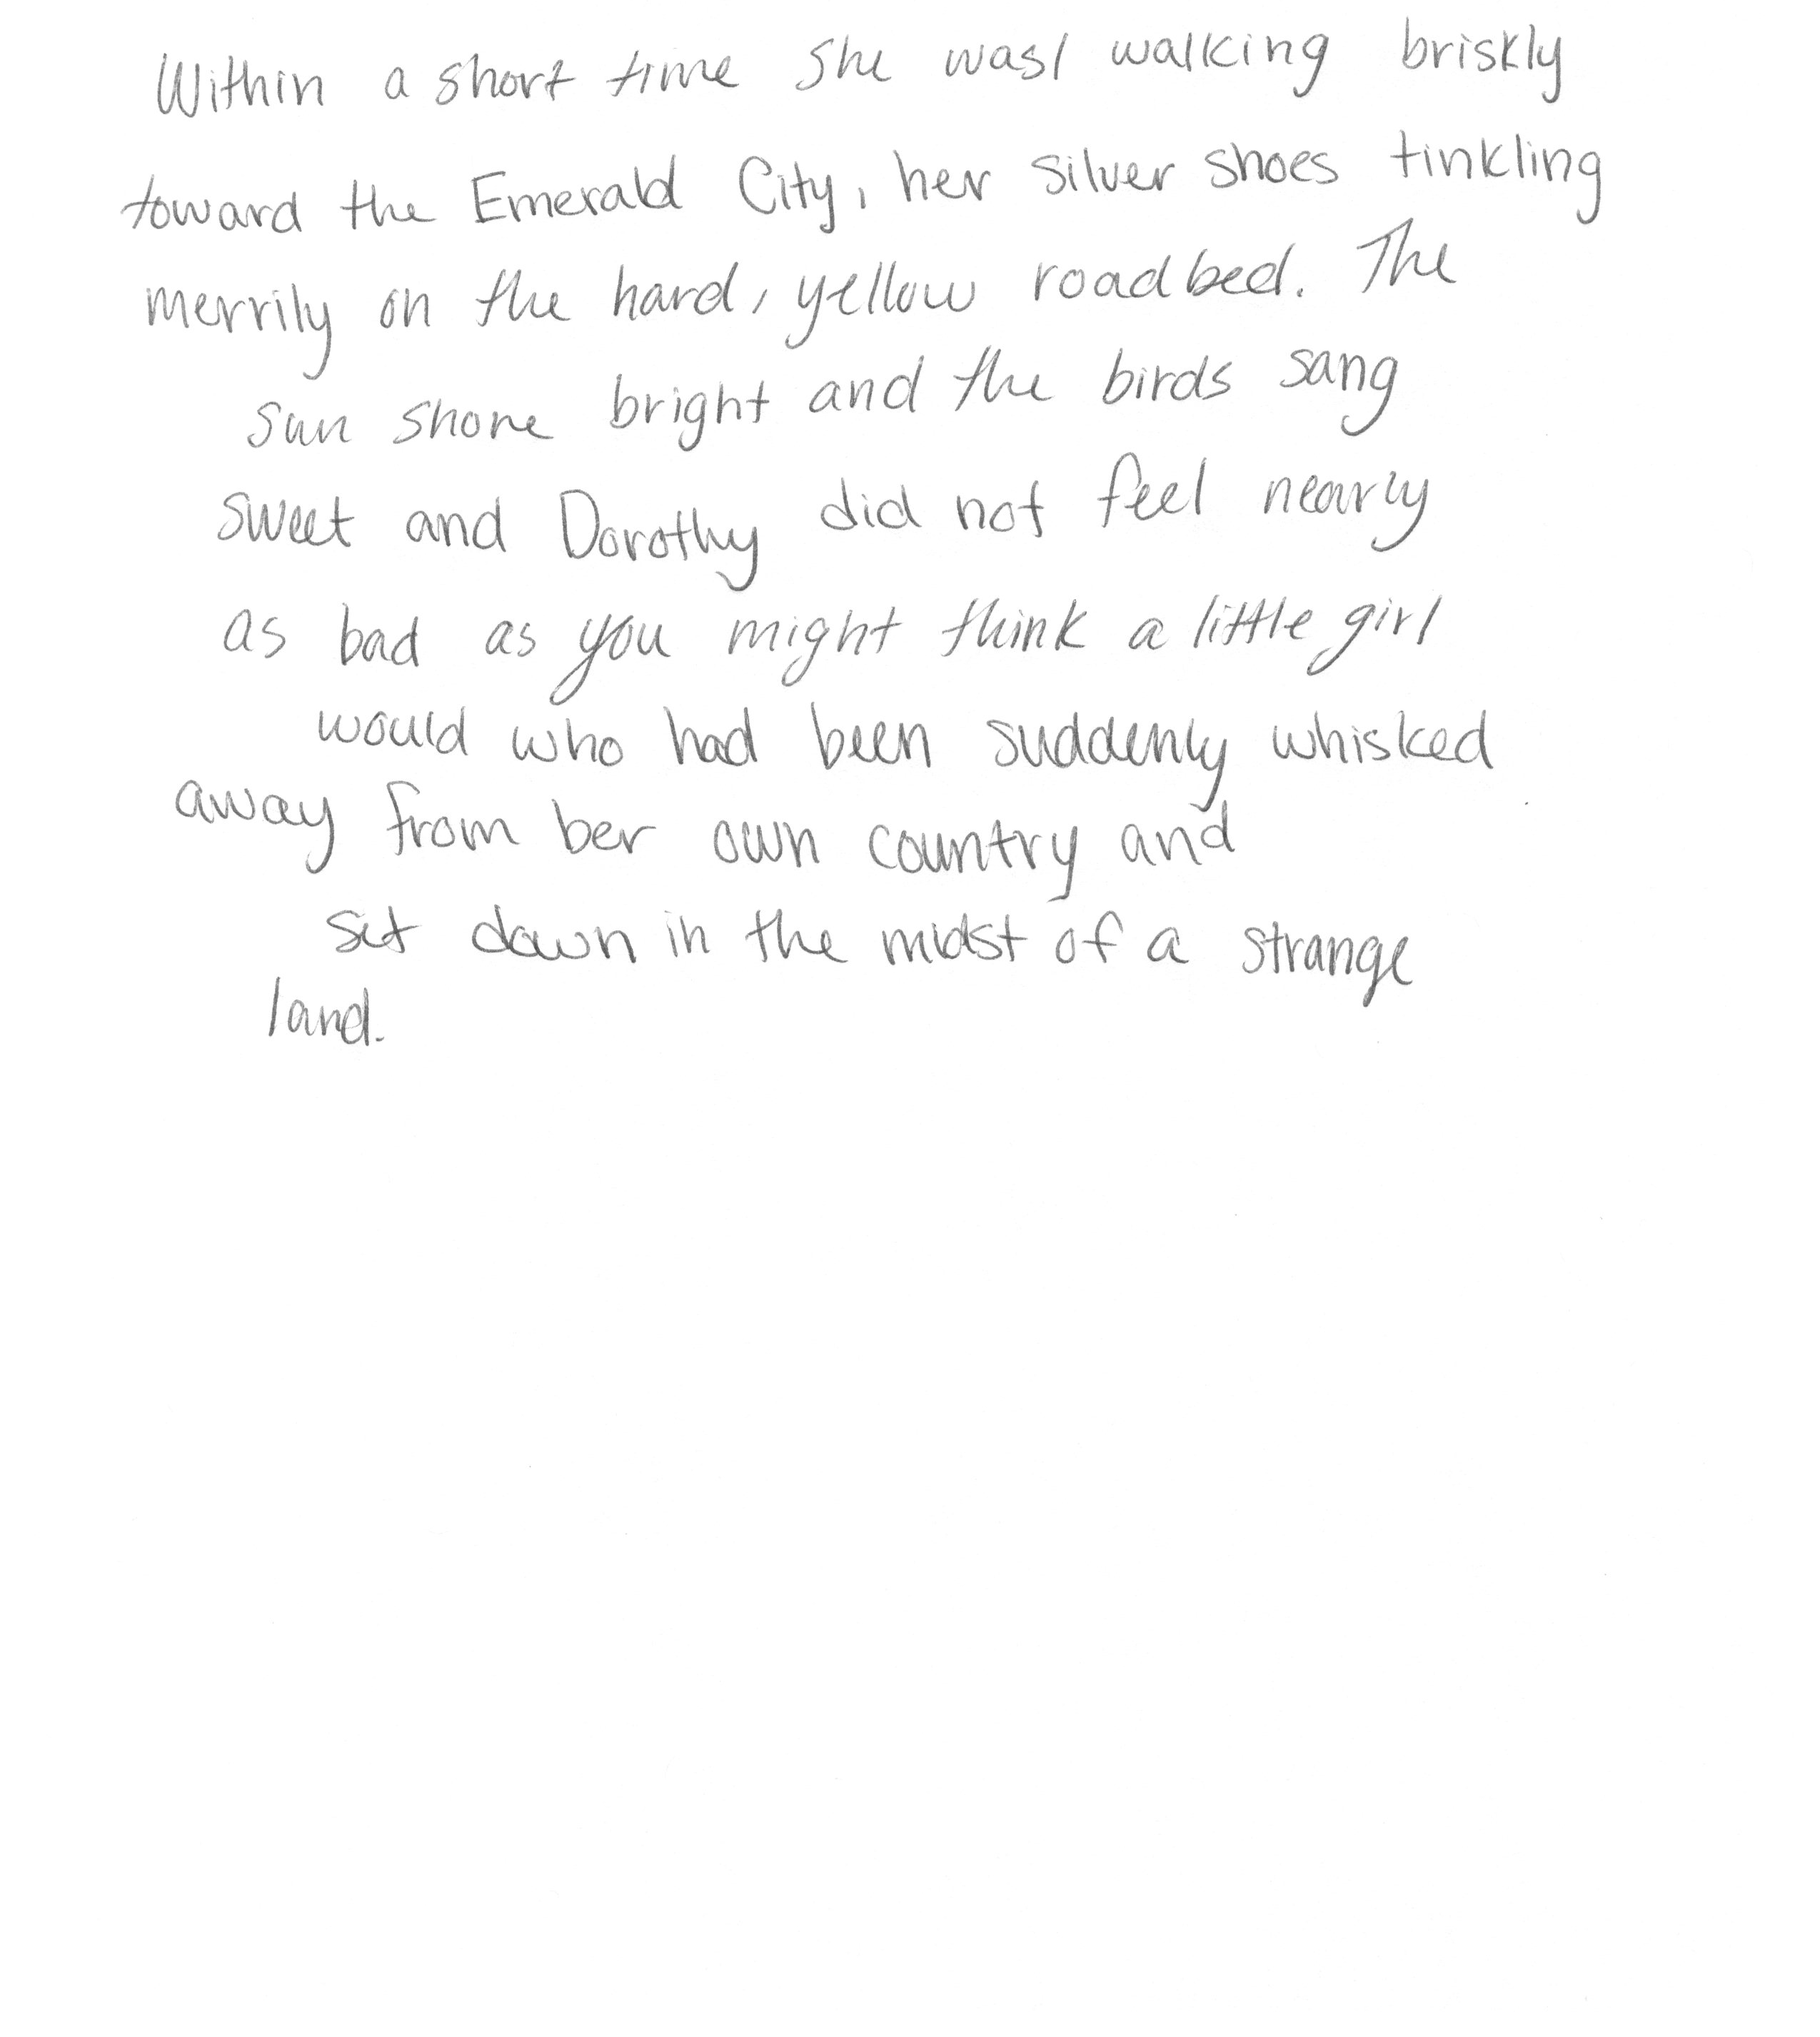 Within a short time she was/ walking briskly
toward the Emerald City, her silver shoes tinkling
merrily on the hard, yellow roadbed. The
sun shone bright and the birds sang
sweet and Dorothy did not feel nearly
as bad as you might think a little girl
would who had been suddenly whisked
away from ber own country and
set down in the midst of a strange
land.